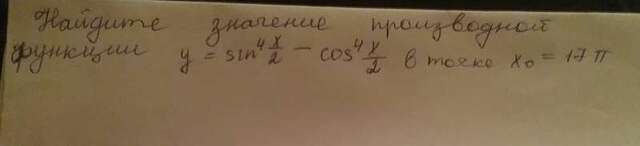 Найдите значение производной
функции y = sin⁴ x/2 − cos⁴ x/2 в точке x₀ = 17π